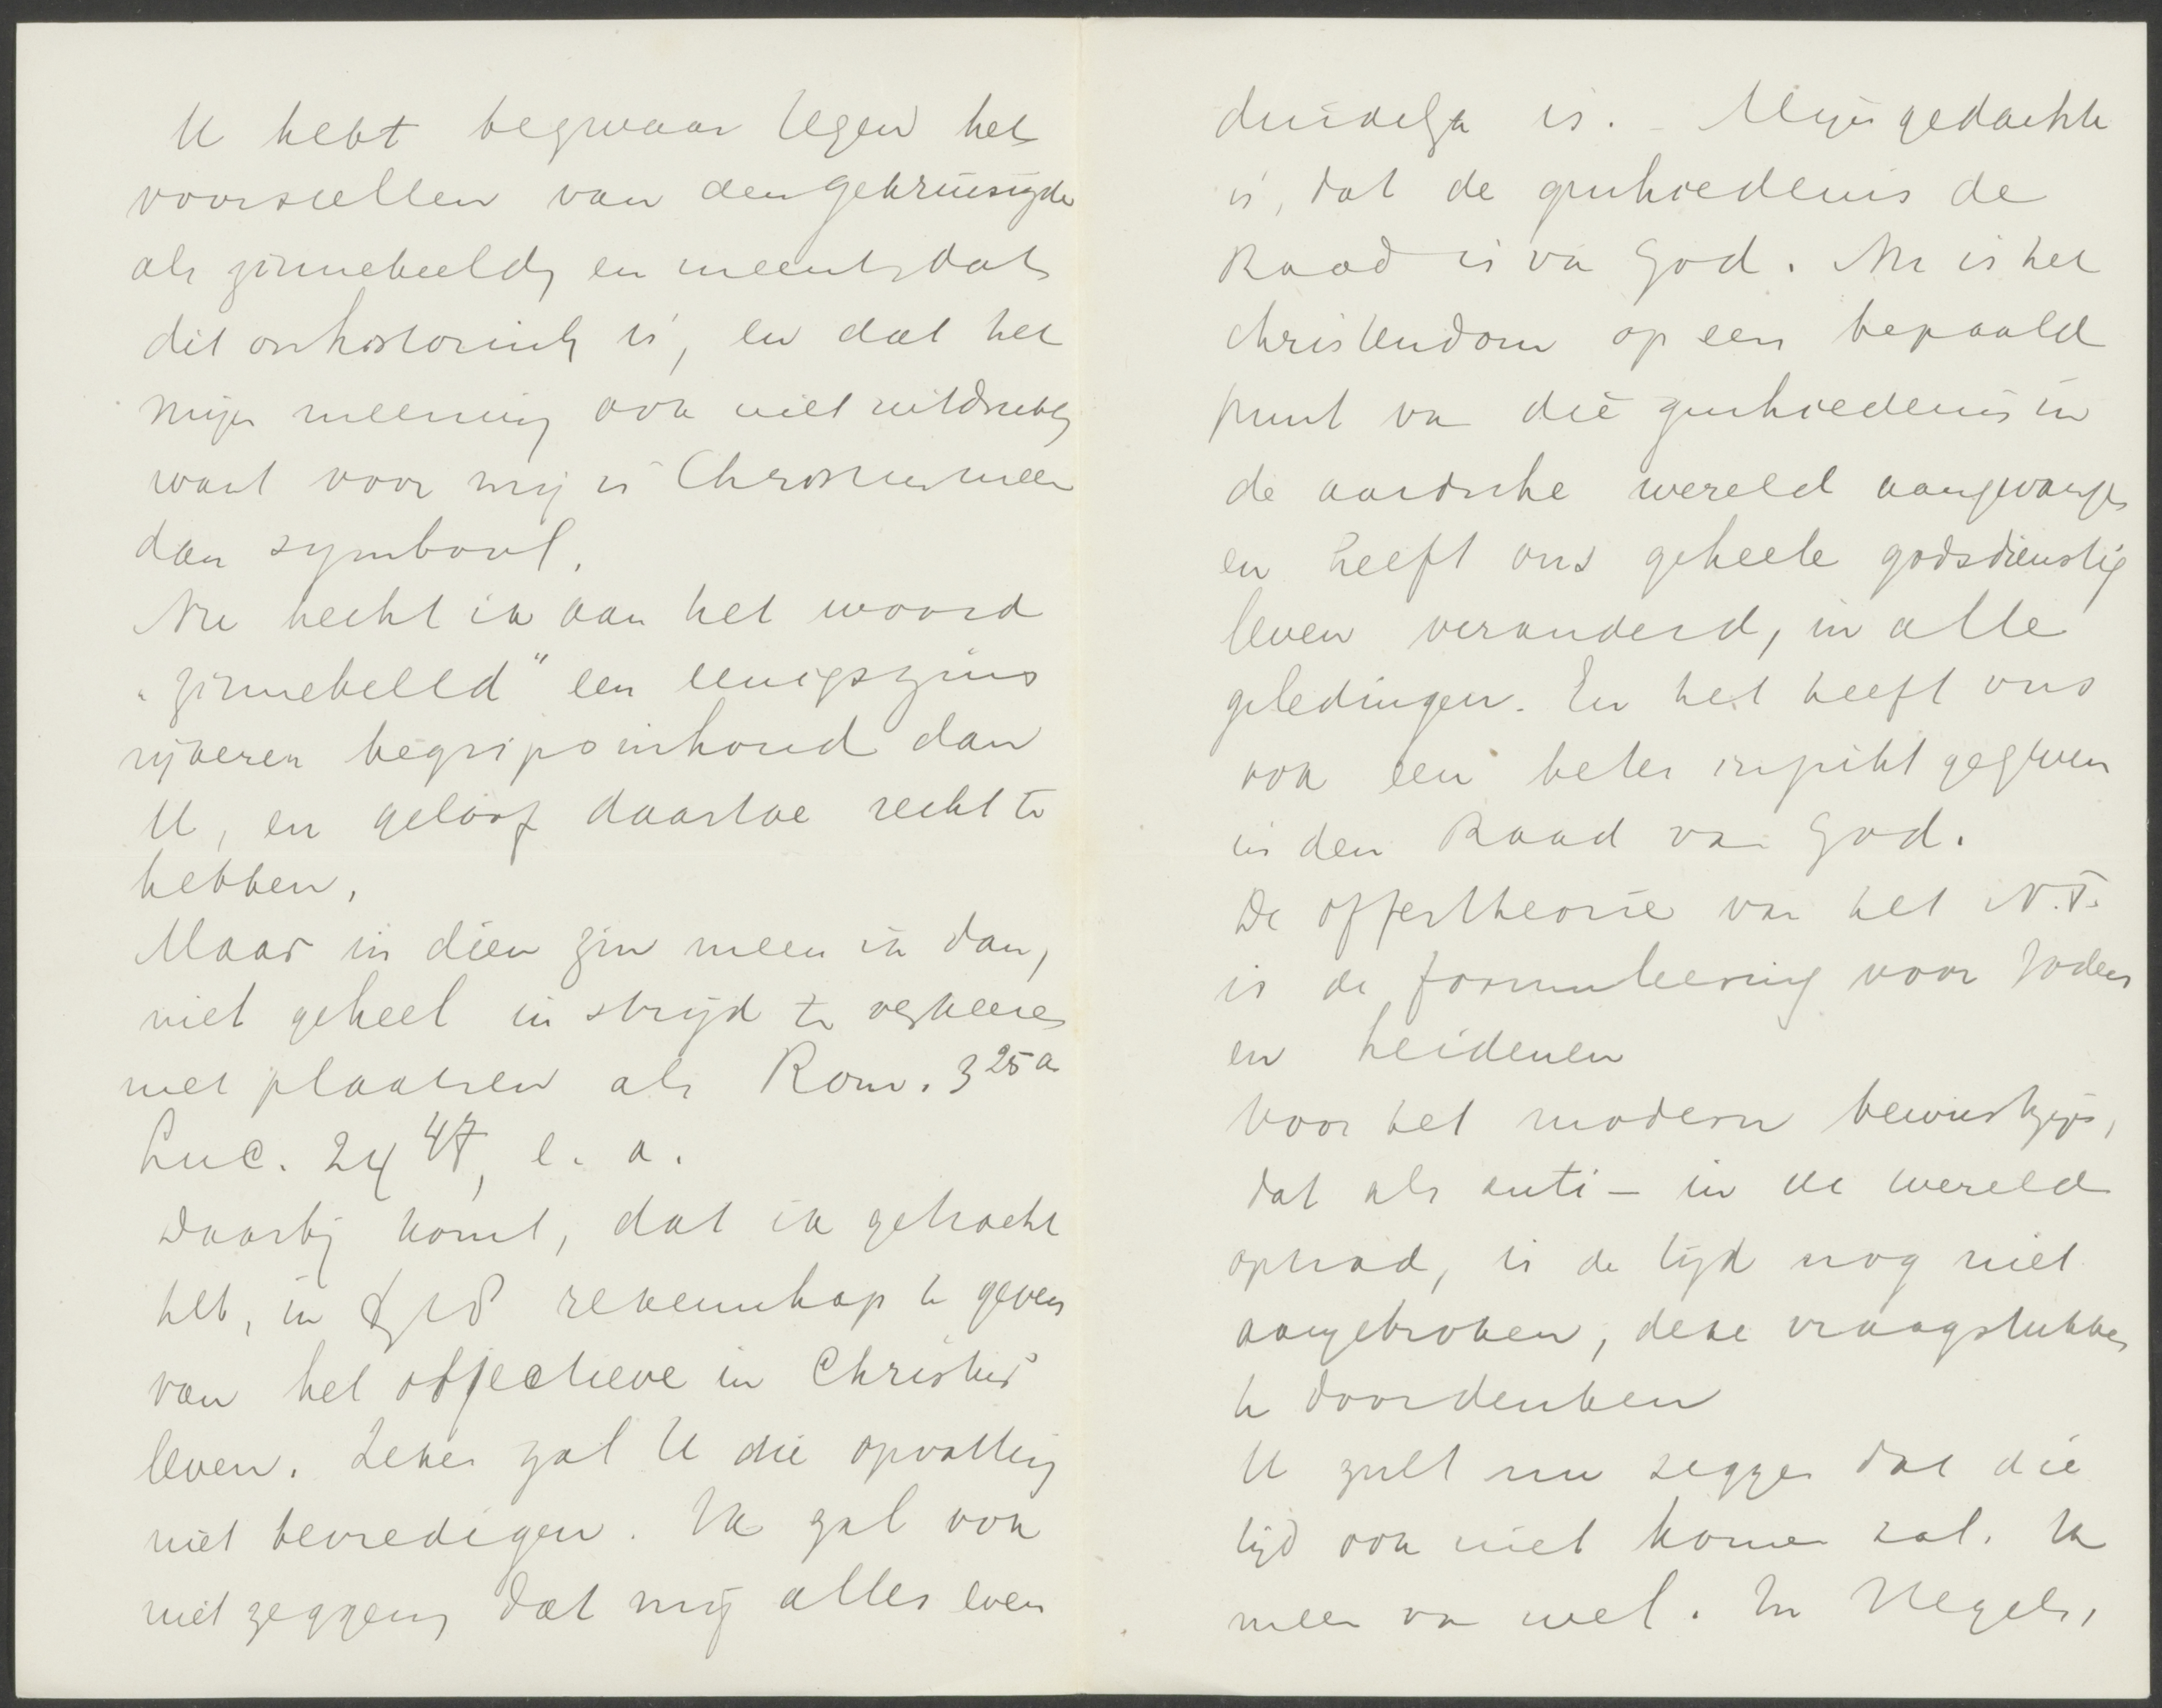 U hebt bezwaar tegen het
voorstellen van den gekruisigde
als zinnebeeld, en meent dat
dit onhistorisch is, en dat het
mijn meening ook niet uitdrukt,
want voor mij is Christus meer
dan symbool.
Nu hecht ik aan het woord
"zinnebeeld" een eenigszins
rijkeren begripsinhoud dan
U, en geloof daartoe recht te
hebben.
Maar in dien zin meen ik dan,
niet geheel in strijd te verkeeren
met plaatsen als Rom. 3 25a
Luc. 24 47, e. a.
Daarbij komt, dat ik getracht
heb, in rekenschap te geven
van het objectieve in Christus'
leven. Zeker zal U die opvatting
niet bevredigen. Ik zal ook
niet zeggen, dat mij alles even
duidelijk is. – Mijn gedachte
is, dat de geschiedenis de
Raad is van God. Nu is het
christendom op een bepaald
punt van die geschiedenis in
de aardsche wereld aangevangen
en heeft ons geheele godsdienstig
leven veranderd, in alle
geledingen. En het heeft ons
ook een beter inzicht gegeven
in den Raad van God.
De offertheorie van het N.T.
is de formuleering voor Joden
en heidenen
Voor het modern bewustzijn,
dat als anti – in de wereld
optrad, is de tijd nog niet
aangebroken, deze vraagstukken
te doordenken
U zult nu zeggen dat die
tijd ook niet komen zal. Ik
meen van wel. In Hegels,